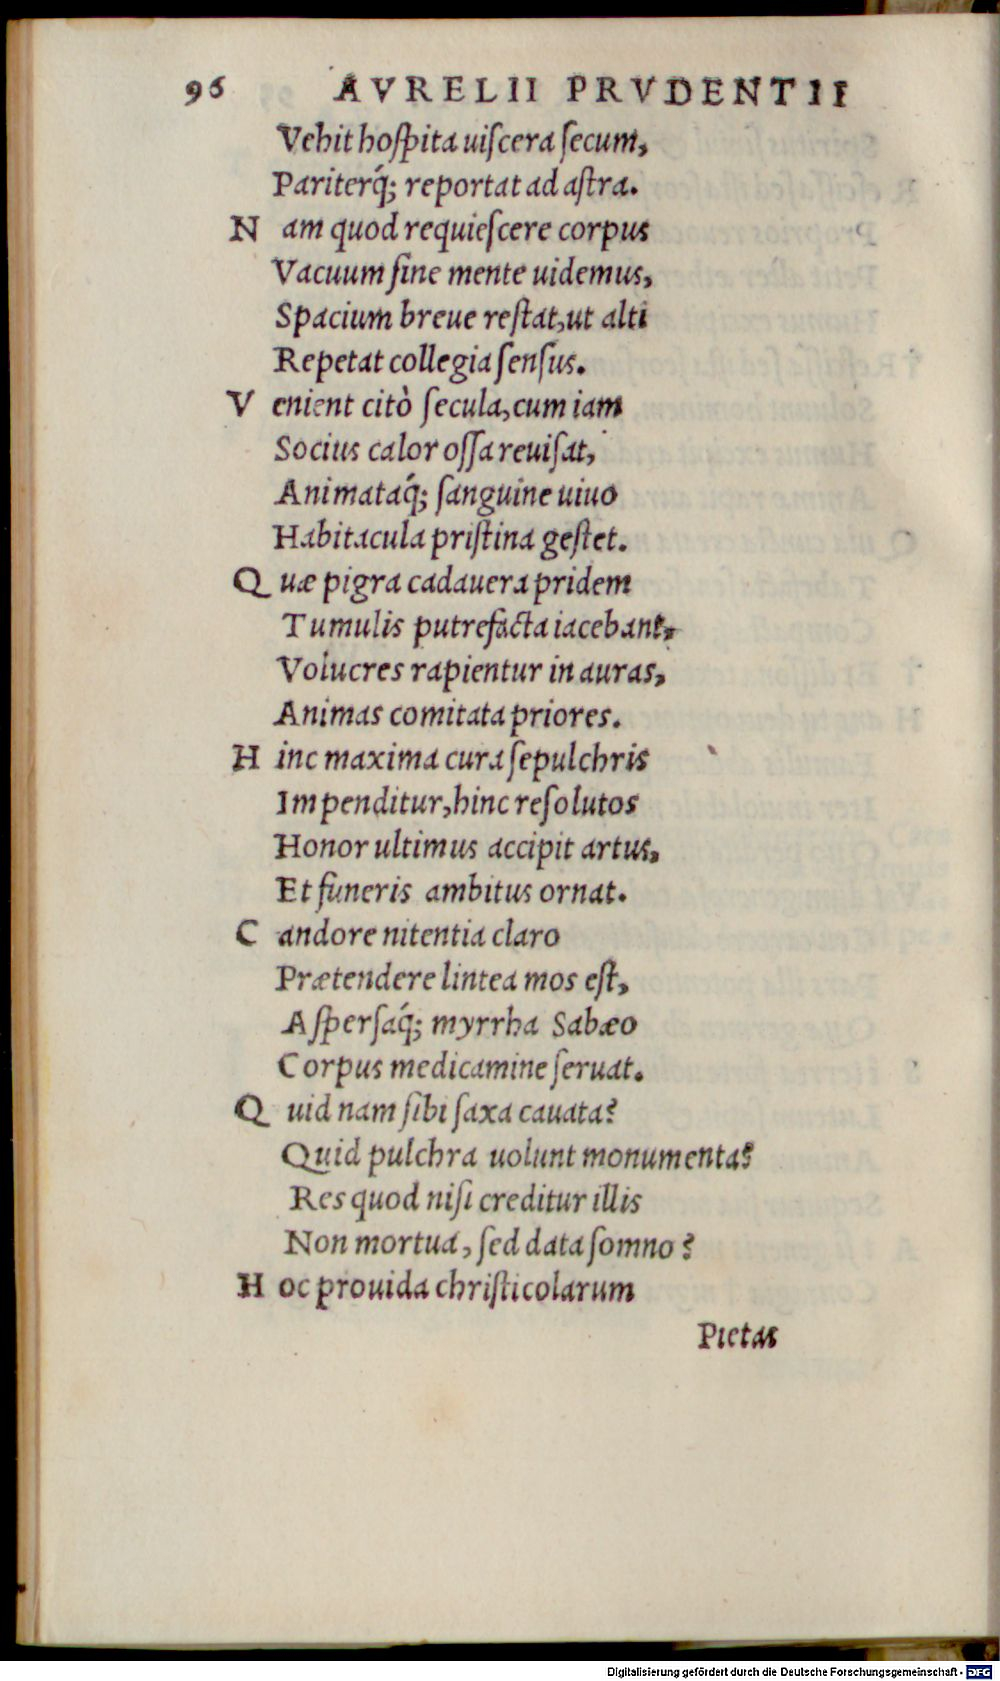 96 AVRELII PRVDENTII
Vehit hoſpita uiſcera ſecum,
Pariterq́; reportat ad aſtra.
N am quod requieſcere corpus
Vacuum ſine mente uidemus,
Spacium breue reſtat, ut alti
Repetat collegia ſenſus.
V enient citò ſecula, cum iam
Socius calor oſſa reuiſat,
Animataq́; ſanguine uiuo
Habitacula priſtina geſtet.
Q uæ pigra cadauera pridem
Tumulis putrefacta iacebant,
Volucres rapientur in auras,
Animas comitata priores.
H inc maxima cura ſepulchris
Impenditur, hinc reſolutos
Honor ultimus accipit artus,
Et funeris ambitus ornat.
C andore nitentia claro
Prætendere lintea mos eſt,
Aſperſaq́; myrrha Sabæo
Corpus medicamine ſeruat.
Q uid nam ſibi ſaxa cauata?
Quid pulchra uolunt monumenta?
Res quod niſi creditur illis
Non mortua, ſed data ſomno?
H oc prouida chriſticolarum
Pietas
Digitalisierung gefördert durch die Deutsche Forschungsgemeinschaft - DFG